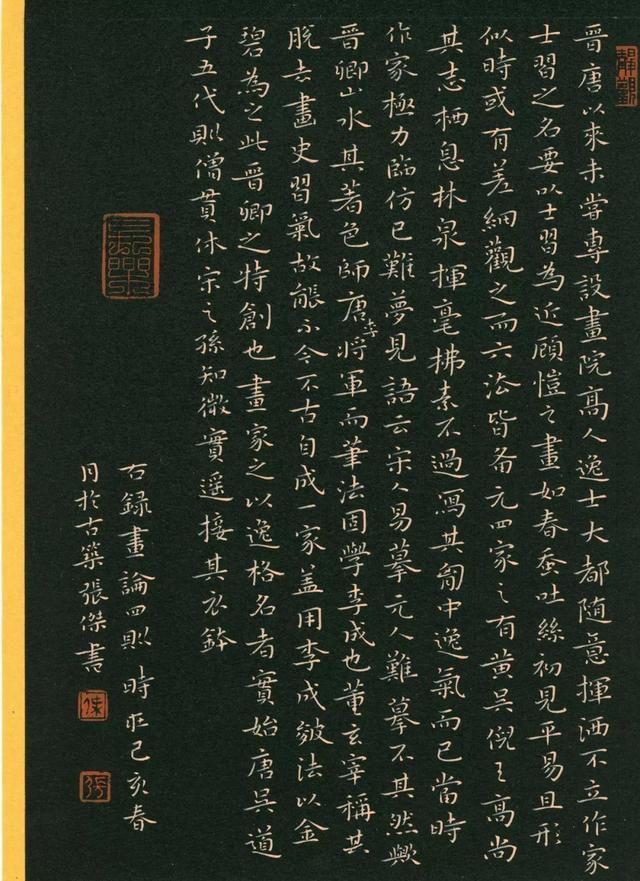 靜觀
晉唐以來未嘗專設畫院高人逸士大都隨意揮洒不立作家
士習之名要以士習為近顧愷之畫如春蚕吐絲初見平易且形
似時或有差細觀之而六法皆备元四家之有黄吳倪王高尚
其志栖息林泉揮毫拂素不過寫其胷中逸氣而已當時
作家極力臨仿已難夢見語云宋人易摹元人難摹不其然歟
晉卿山水其著色師唐李將軍而筆法固學李成也董玄宰稱其
脫去畫史習氣故能不今不古自成一家盖用李成皴法以金
碧為之此晉卿之特創也畫家之以逸格名者實始唐吳道
子五代則僧貫休宋之孫知微實遥接其衣鉢
右録畫論四則 時在己亥春
月於古築張傑書